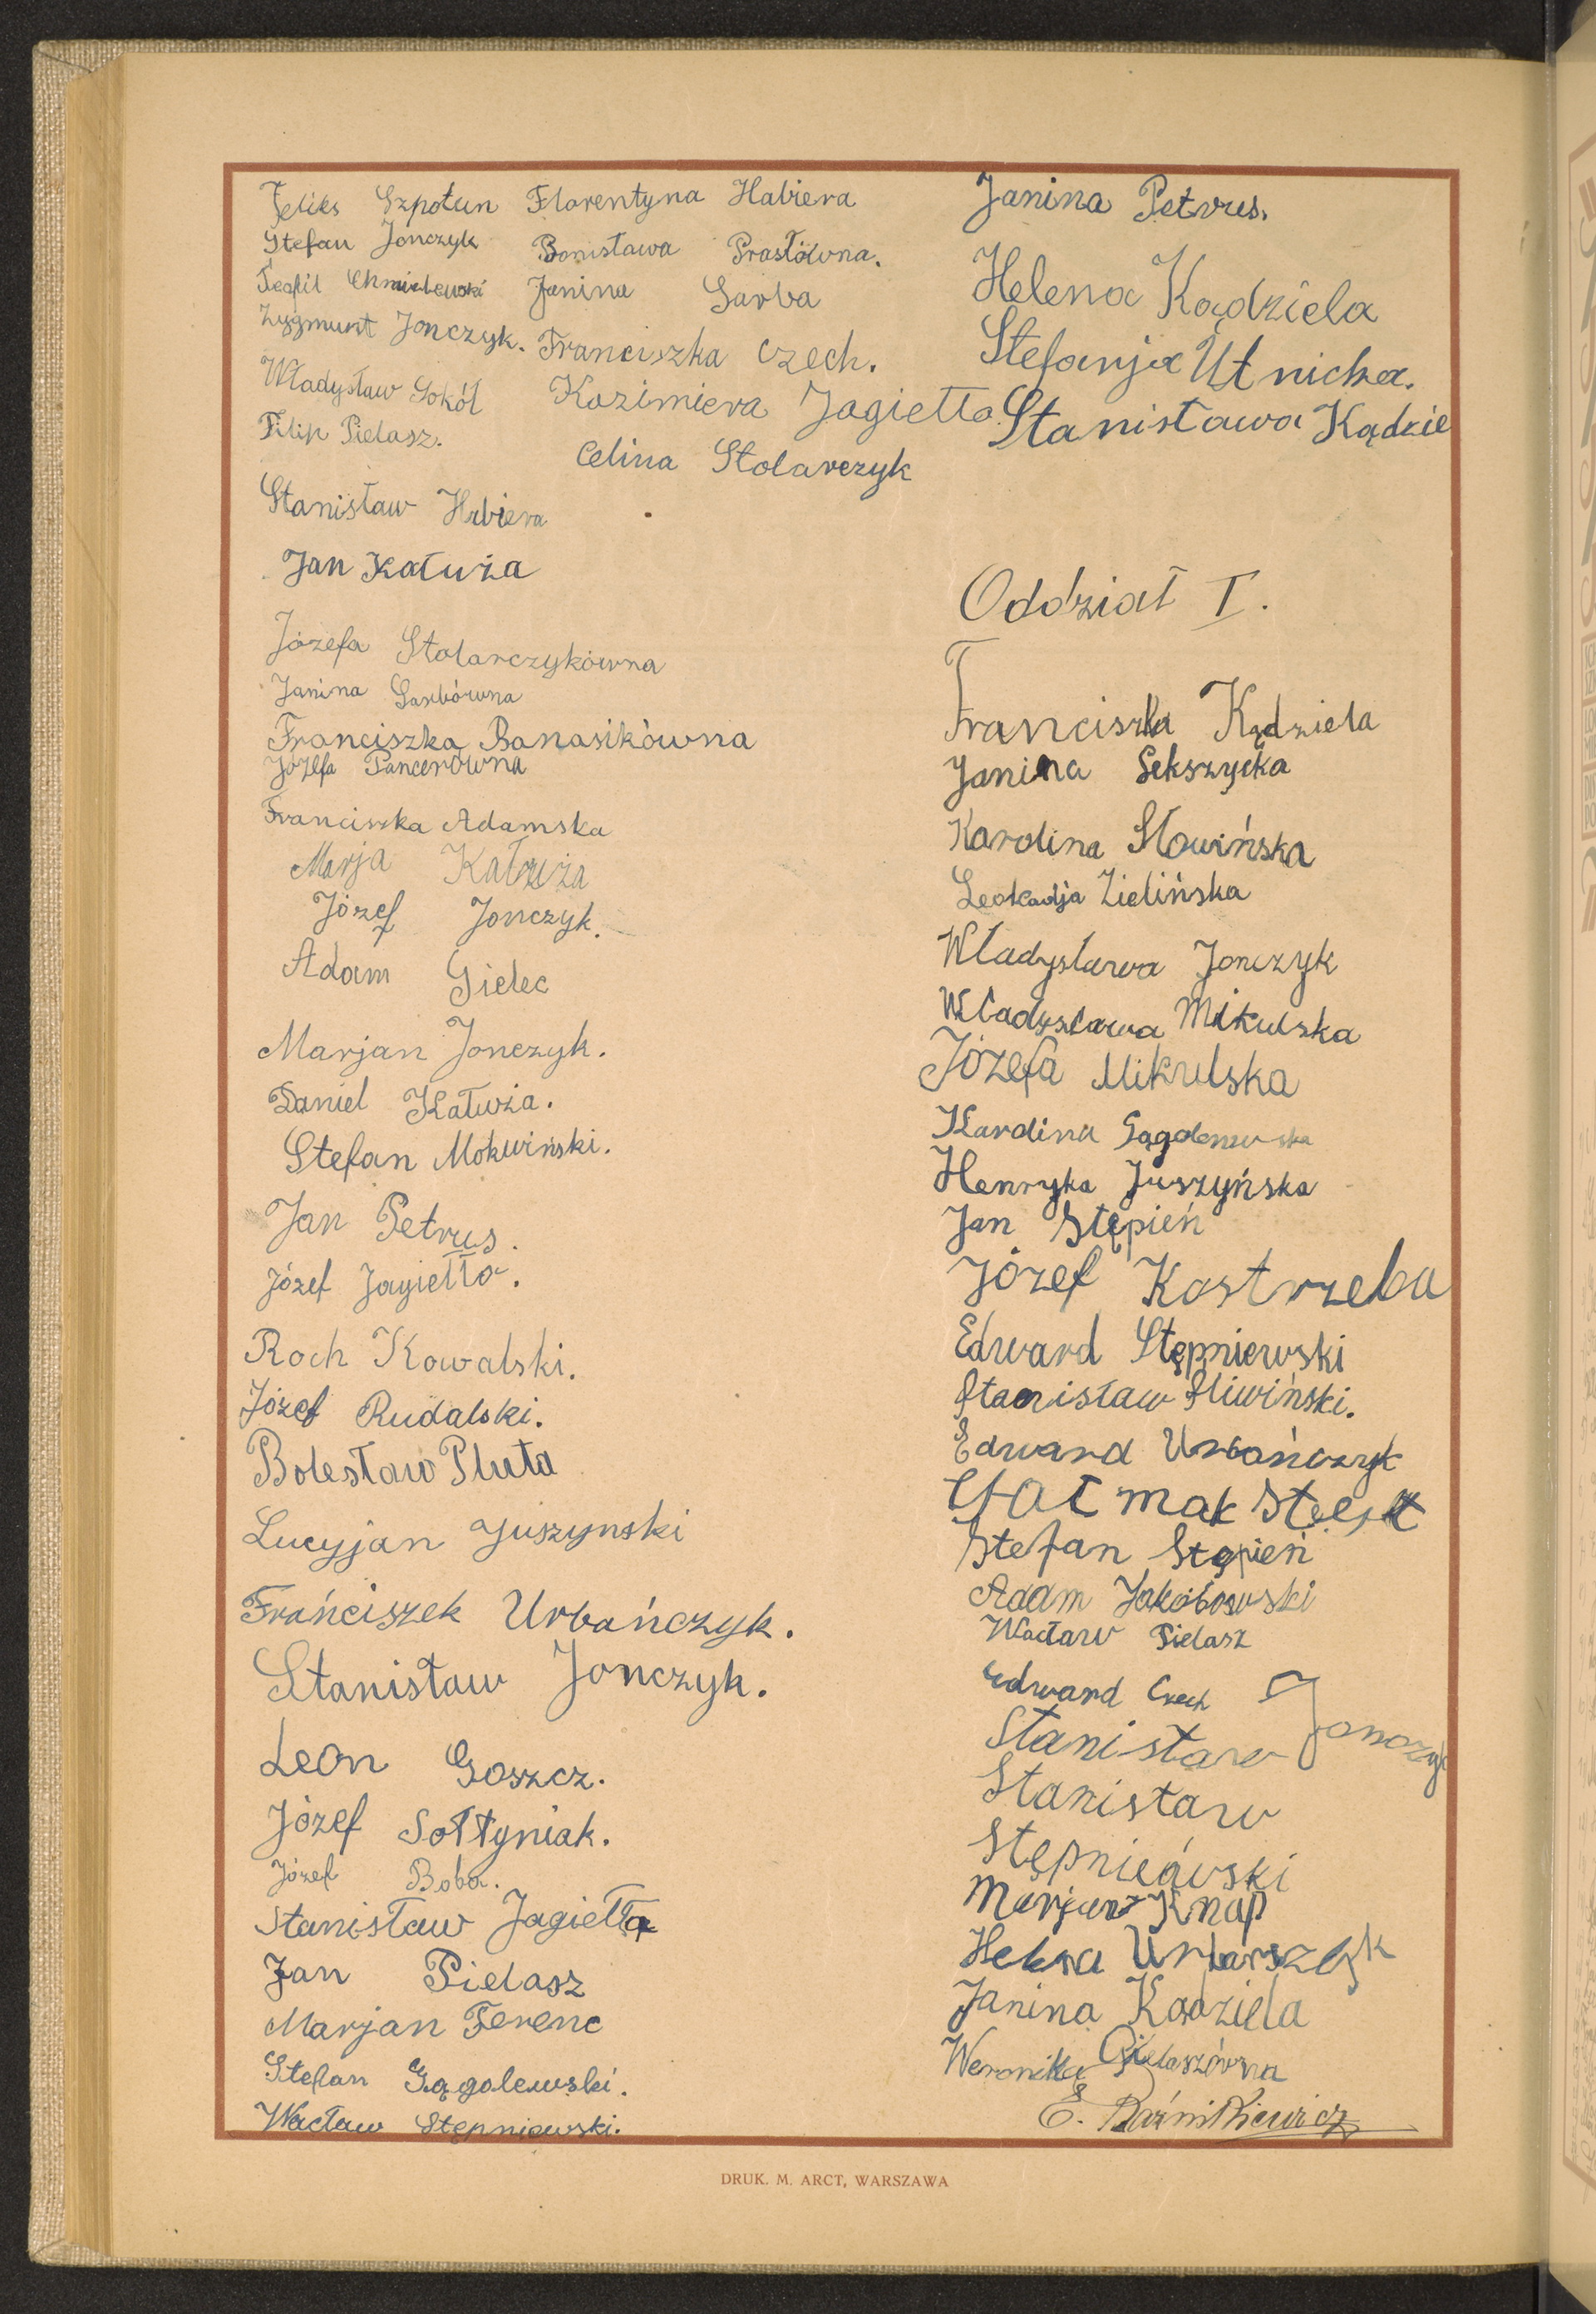 Feliks Szpotan
Stefan Jonczyk
Teofil Chmielewski
Zygmunt Jonczyk.
Władysław Sokół
Filip Pielasz.
Stanisław Habiera
Jan Kałuża
Józefa Stolarczykówna
Janina Garbówna
Franciszka Banasikówna
Józefa Pancerówna
Franciszka Adamska
Marja Kałuża
Józef Jonczyk.
Adam Gielec
Marjan Jonczyk.
Daniel Kałuża.
Stefan Mokwiński.
Jan Petrus.
Józef Jagiełło.
Roch Kowalski.
Józef Rudalski.
Bolesław Pluta
Lucyjan Juszynski
Frańciszek Urbańczyk.
Stanisław Jonczyk.
Leon Goszcz.
Józef Sołtyniak.
Józef Boba.
Stanisław Jagiełło
Jan Pielasz
Marjan Ferenc
Stefan Gągolewski.
Wacław Stępniewski.
Florentyna Habiera
Bonisława Prasłówna.
Janina Garba
Franciszka Czech.
Kazimiera Jagiełło
Celina Stolarczyk
Janina Petrus.
Helena Kądziela
Stefanja Utnicka.
Stanisława Kądzie
Oddział I.
Franciszka Kądziela
Janina Sekszycka
Karolina Słowińska
Leokadja Zielińska
Władysława Jonczyk
Władysława Mikulska
Józefa Mikulska
Karolina
Henryka Juszyńska
Jan Stępień
Józef Kostrzeba
Edward Stępniewski
Stanisław Śliwiński.
Edward Urbańczyk
Stefan Stępień
Adam Jakóbowski
Wacław Pielasz
Edward Czech
Stanisław Jonczyk
Stanisław
Stępniewski
Marjan Knap
Janina Kądziela
Weronika Pielaszówna
E. Raźnikiewicz
DRUK. M. ARCT, WARSZAWA